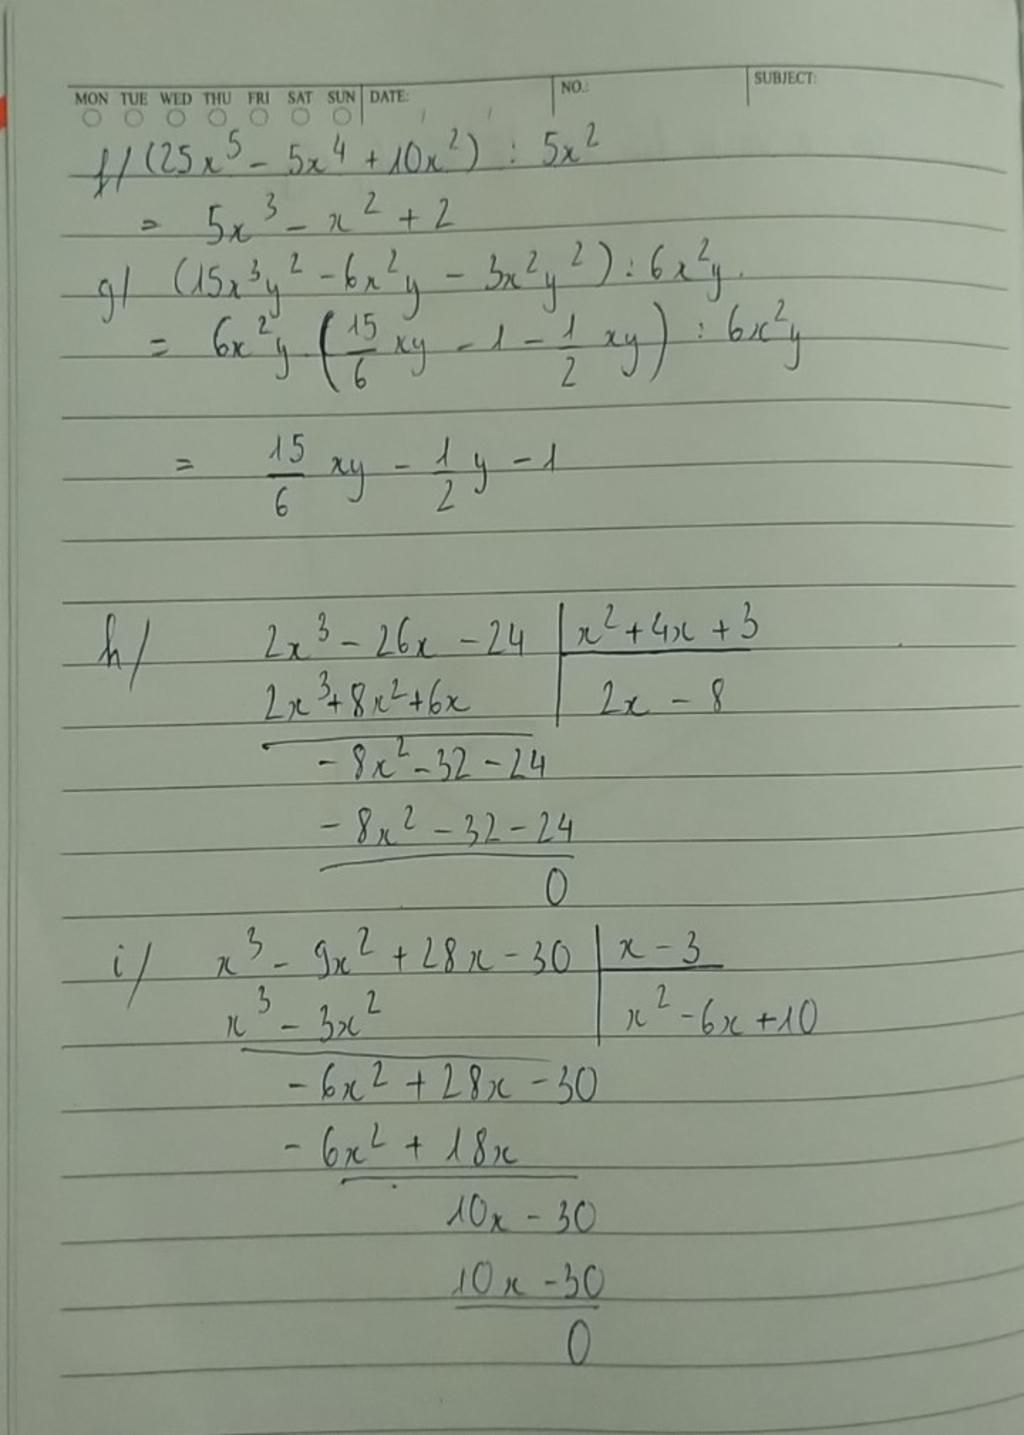 MON TUE WED THU FRI SAT SUN DATE: NO.: SUBJECT:
f/ (25x⁵ - 5x⁴ + 10x²) : 5x²
= 5x³ - x² + 2
g/ (15x³y² - 6x²y - 3x²y²) : 6x²y.
= 6x²y.(15/6 xy - 1 - 1/2 xy) : 6x²y
= 15/6 xy - 1/2 y - 1
h/ 2x³ - 26x - 24 | x² + 4x + 3
2x³ + 8x² + 6x | 2x - 8
- 8x² - 32 - 24
- 8x² - 32 - 24
0
i/ x³ - 9x² + 28x - 30 | x - 3
x³ - 3x² | x² - 6x + 10
- 6x² + 28x - 30
- 6x² + 18x
10x - 30
10x - 30
0